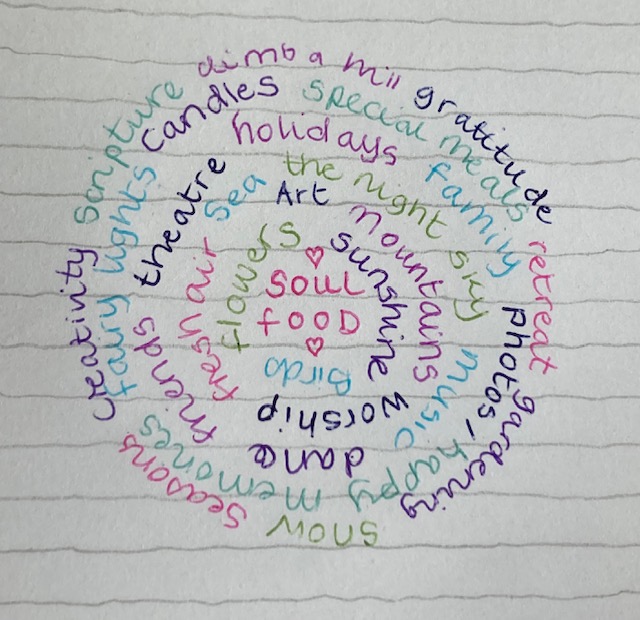 soul
food
flowers
sunshine
Birds
fresh air
sea
Art
mountains
worship
theatre
the night sky
music
dance
friends
holidays
family
photos, happy memories
fairy lights
candles
special meals
retreat
gardening
snow
seasons
creativity
scripture
climb a hill
gratitude